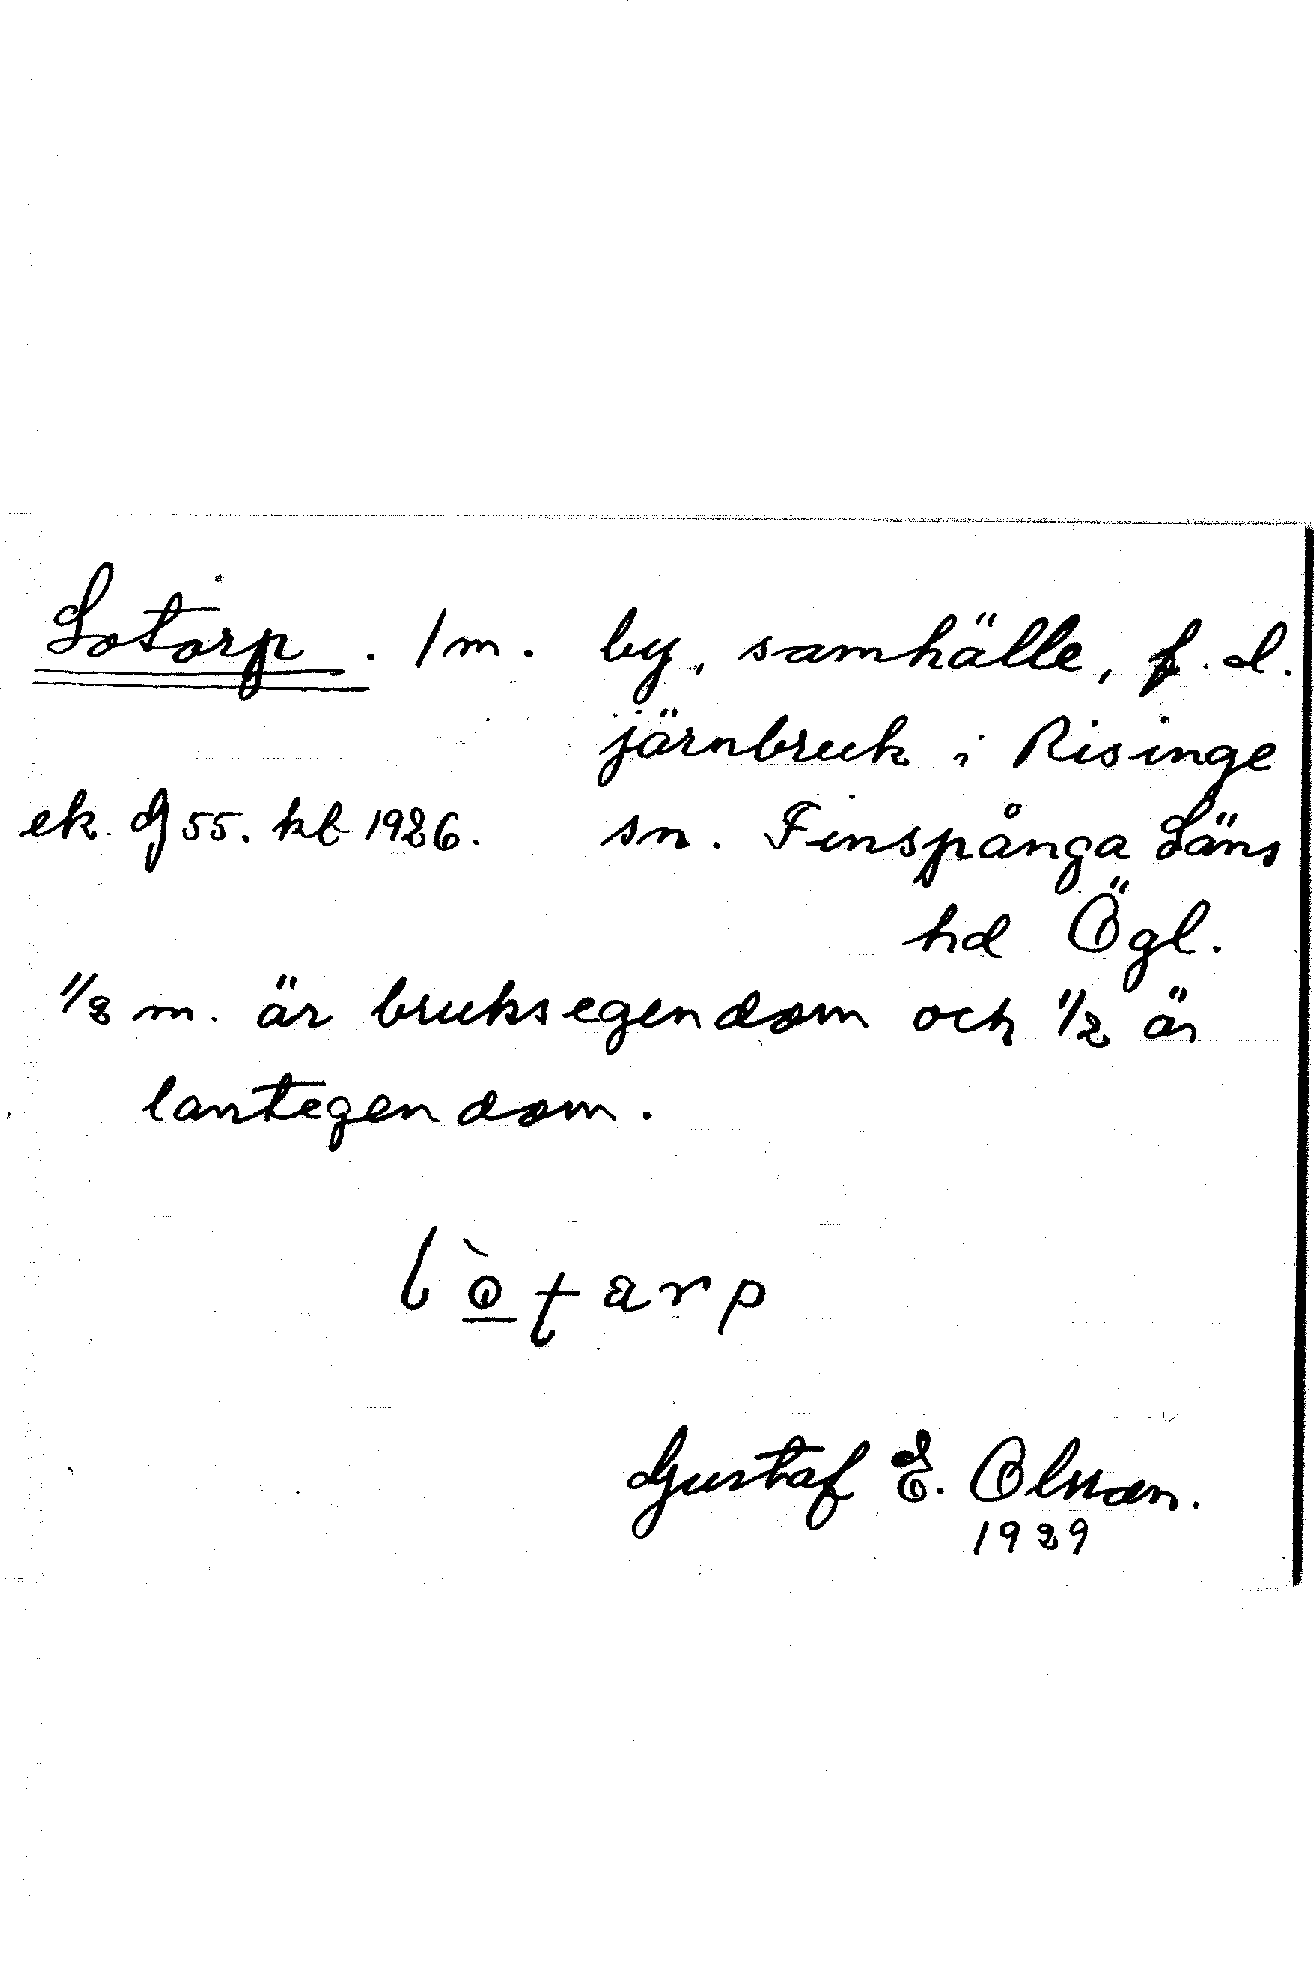 Lotorp. 1 m. by, samhälle, f. d.
järnbruk i Risinge
ek. G 55. kb 1926. sn. Finspånga Läns
hd Ögl.
1/2 m. är bruksegendom och 1/2 är
lantegendom.
lòtarp
Gustaf E. Olsson.
1929